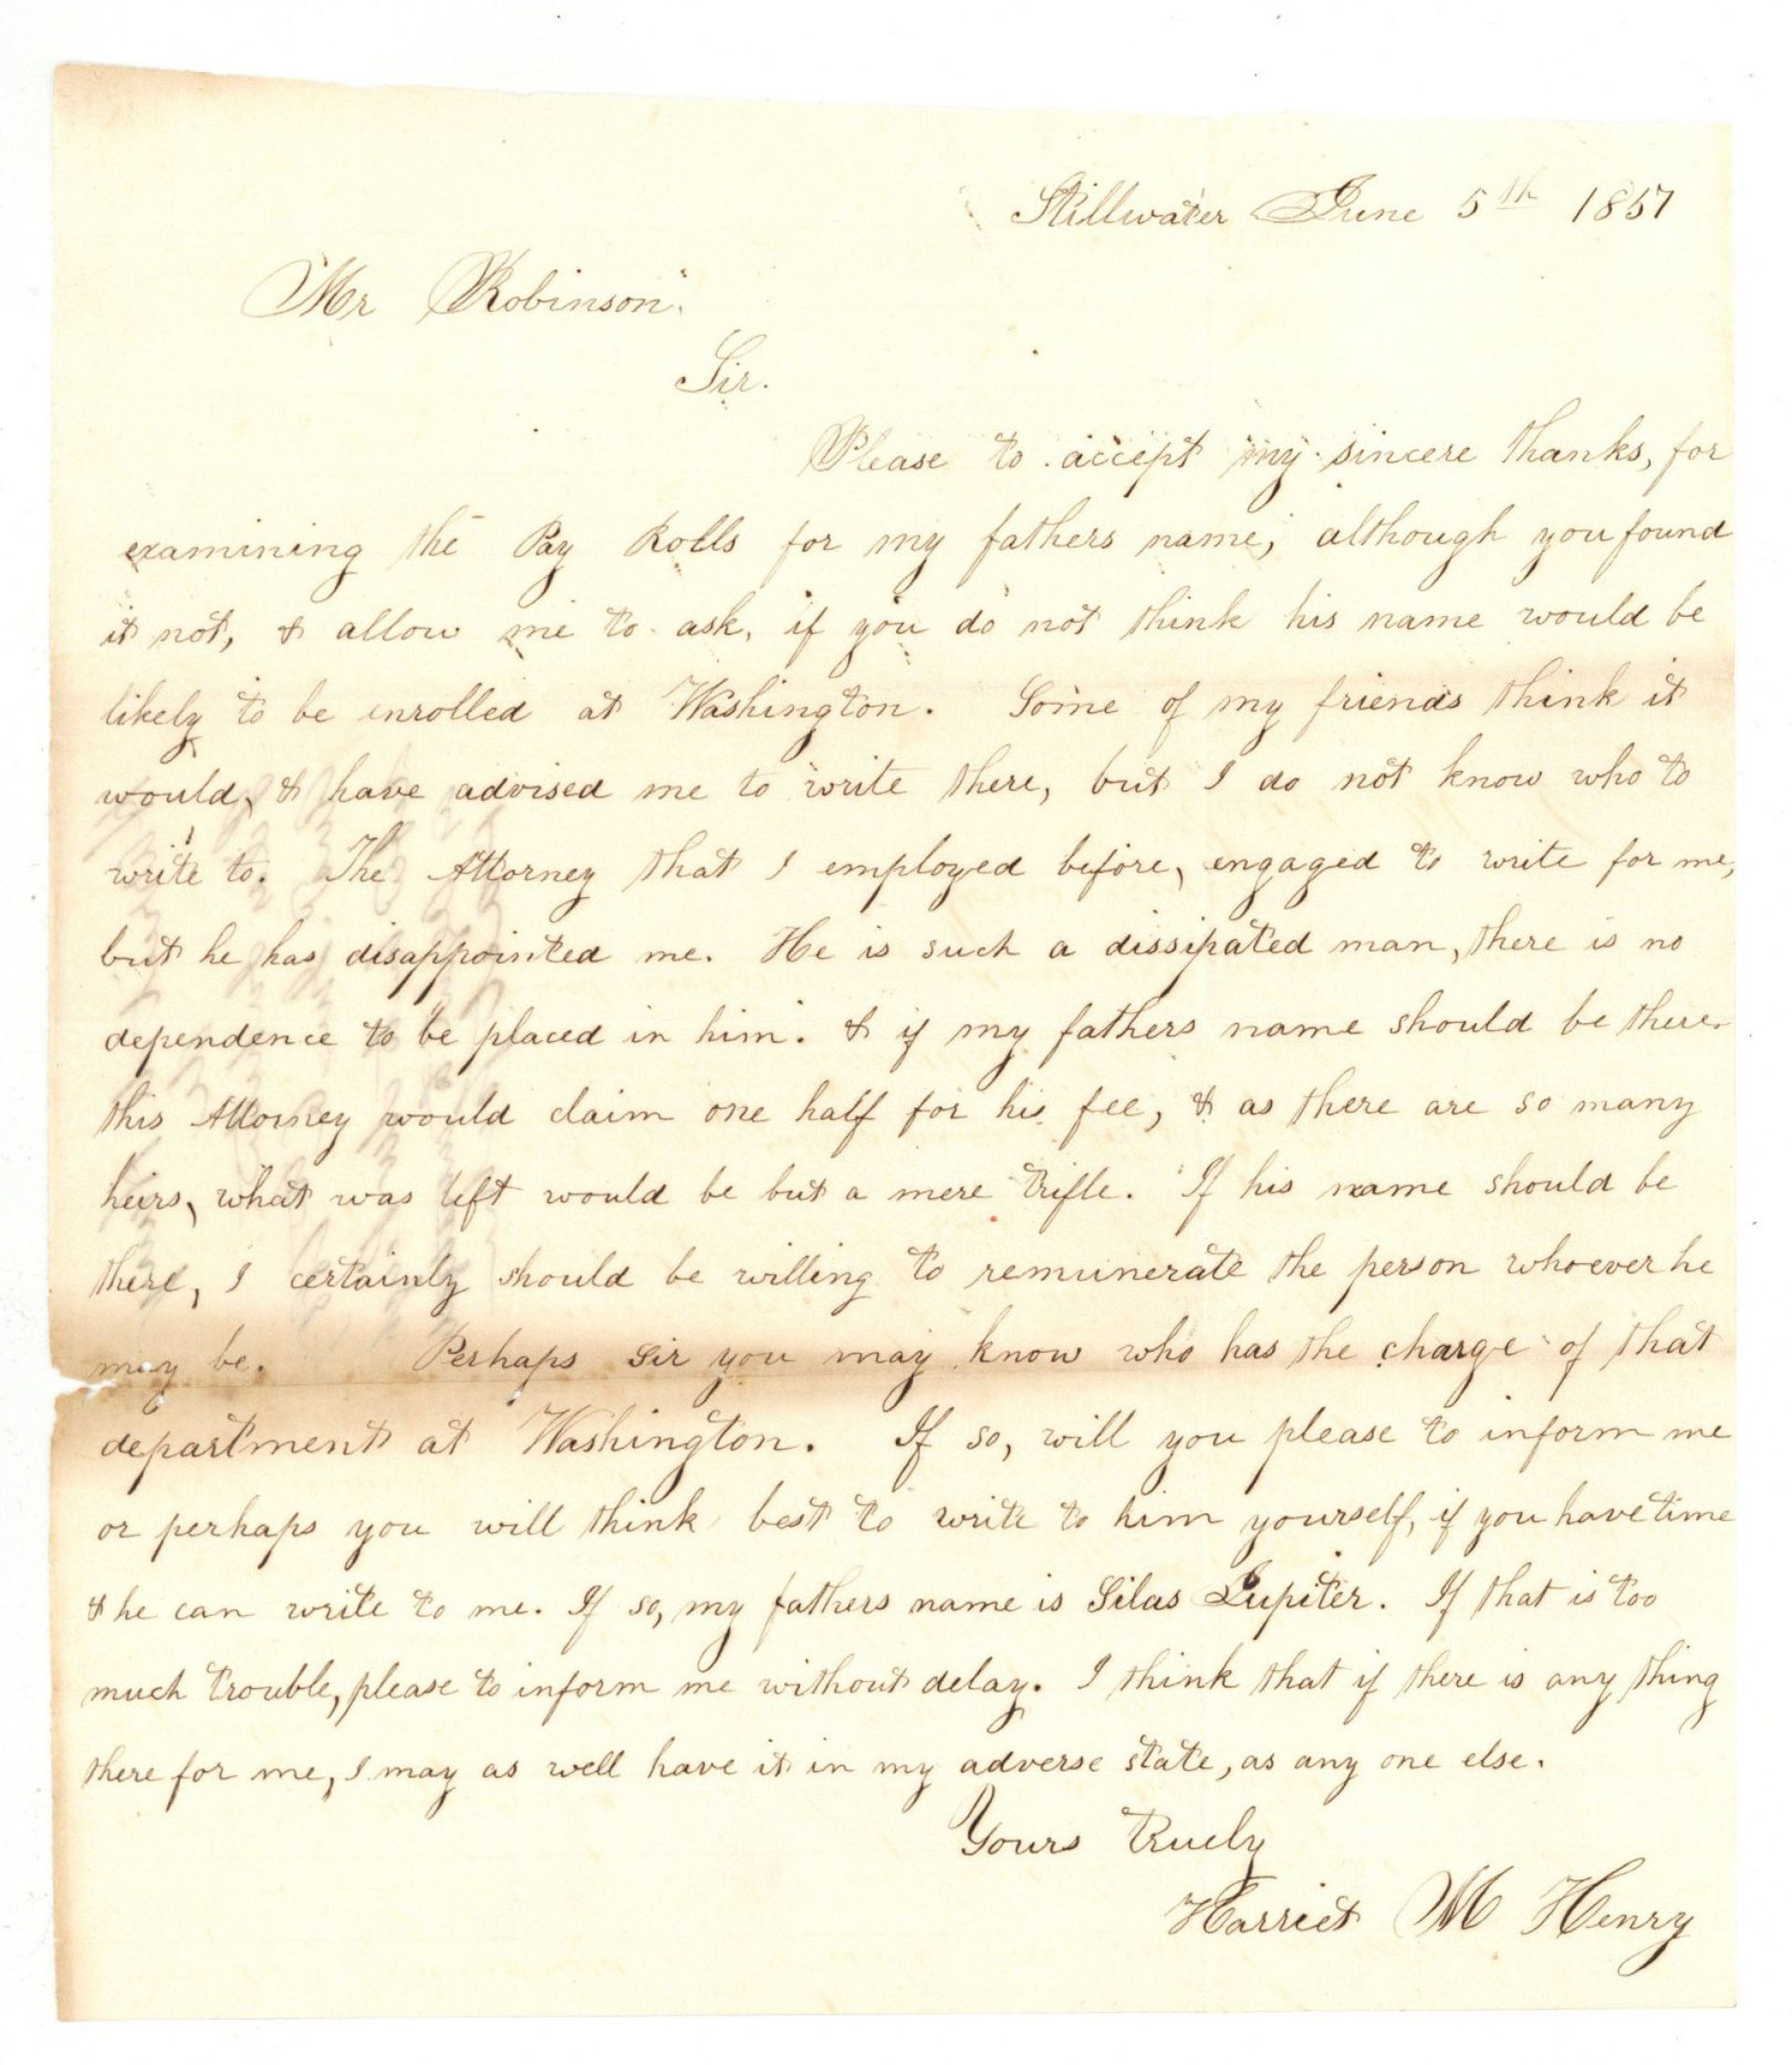 Stillwater June 5th 1857
Mr Robinson.
Sir.
Please to accept my sincere thanks, for
examining the Pay Rolls for my fathers name; although you found
it not, & allow me to ask, if you do not think his name would be
likely to be enrolled at Washington. Some of my friends think it
would, & have advised me to write there, but I do not know who to
write to. The Attorney that I employed before, engaged to write for me,
but he has disappointed me. He is such a dissipated man, there is no
dependence to be placed in him. & if my fathers name should be there
this Attorney would claim one half for his fee, & as there are so many
heirs, what was left would be but a mere trifle. If his name should be
there, I certainly should be willing to remunerate the person whoever he
may be. Perhaps Sir you may know who has the charge of that
department at Washington. If so, will you please to inform me
or perhaps you will think best to write to him yourself, if you have time
& he can write to me. If so, my fathers name is Silas Jupiter. If that is too
much trouble, please to inform me without delay. I think that if there is any thing
there for me, I may as well have it in my adverse state, as any one else.
Yours Truely
Harriet M Henry